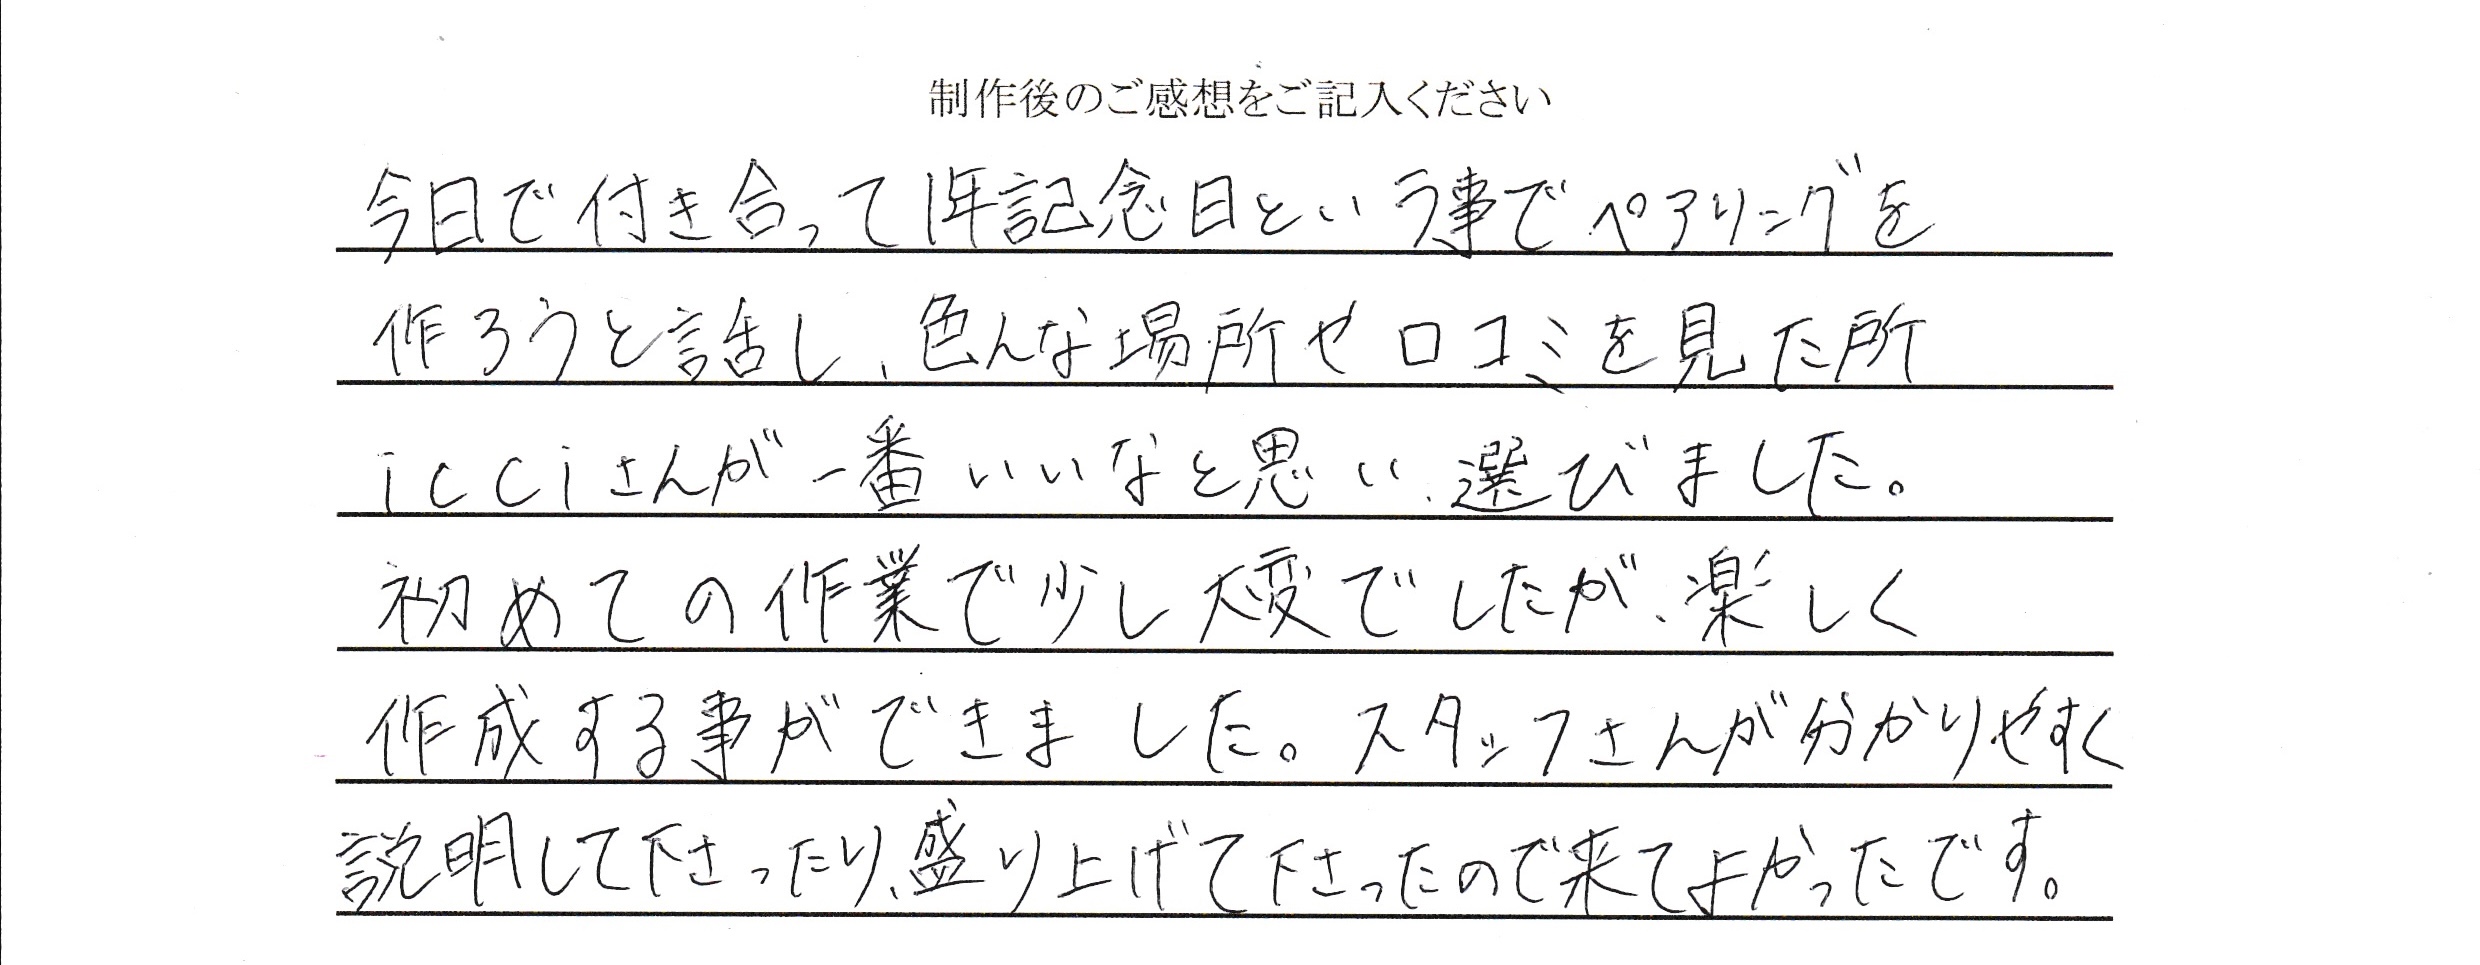 制作後のご感想をご記入ください
今日で付き合って1年記念日という事でペアリングを
作ろうと話し、色んな場所や口コミを見た所
icciさんが一番いいなと思い、選びました。
初めての作業で少し大変でしたが、楽しく
作成する事ができました。スタッフさんが分かりやすく
説明して下さったり、盛り上げて下さったので来てよかったです。